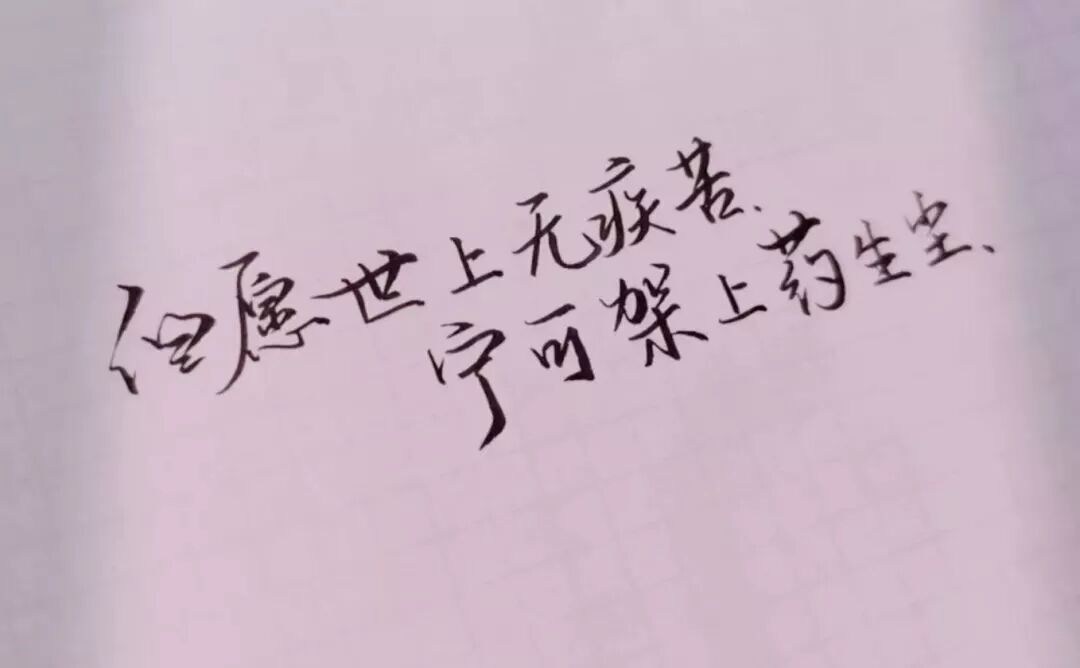 但愿世上无疾苦、
宁可架上药生尘、